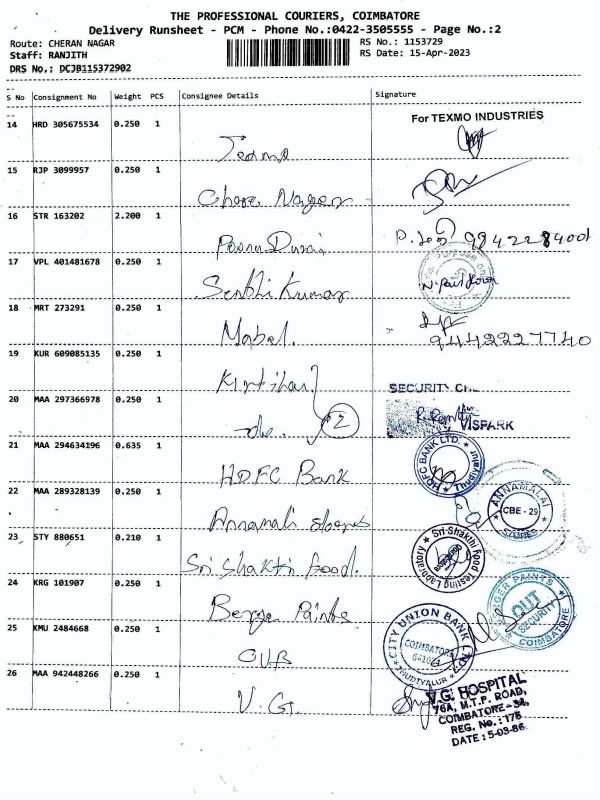 THE PROFESSIONAL COURIERS, COIMBATORE
Delivery Runsheet - PCM - Phone No.:0422-3505555 - Page No.:2
Route: CHERAN NAGAR
Staff: RANJITH
DRS No.: DCJB115372902
RS No.: 1153729
RS Date: 15-Apr-2023
S No Consignment No Weight PCS Consignee Details Signature
For TEXMO INDUSTRIES
14 HRD 305675534 0.250 1
Texmo
15 RJP 3099957 0.250 1
Nagar
16 STR 163202 2.200 1
Durai
9842284001
17 VPL 401481678 0.250 1
Senthi Kumar
18 MRT 273291 0.250 1
Mabel.
9442227740
19 KUR 609085135 0.250 1
20 MAA 297366978 0.250 1
do. 2
SECURITY
VISPARK
21 MAA 294634196 0.635 1
HDFC Bank
HDFC BANK LTD.
Thudiyalur
22 MAA 289328139 0.250 1
Annamali Stores
ANNAMALAI
CBE - 29
STORES
23 STY 880651 0.210 1
Sri Shakthi Food.
Sri Shakthi Food
Testing Laboratory
Coimbatore
24 KRG 101907 0.250 1
Berger Paints
BERGER PAINTS
OUT
SECURITY
COIMBATORE
25 KMU 2484668 0.250 1
CUB
CITY UNION BANK LTD.
COIMBATORE
641024
THUDIYALUR
26 MAA 942448266 0.250 1
V.G.
V.G. HOSPITAL
76A, M.T.P. ROAD,
COIMBATORE - 34,
REG. No.: 176
DATE : 5-03-86